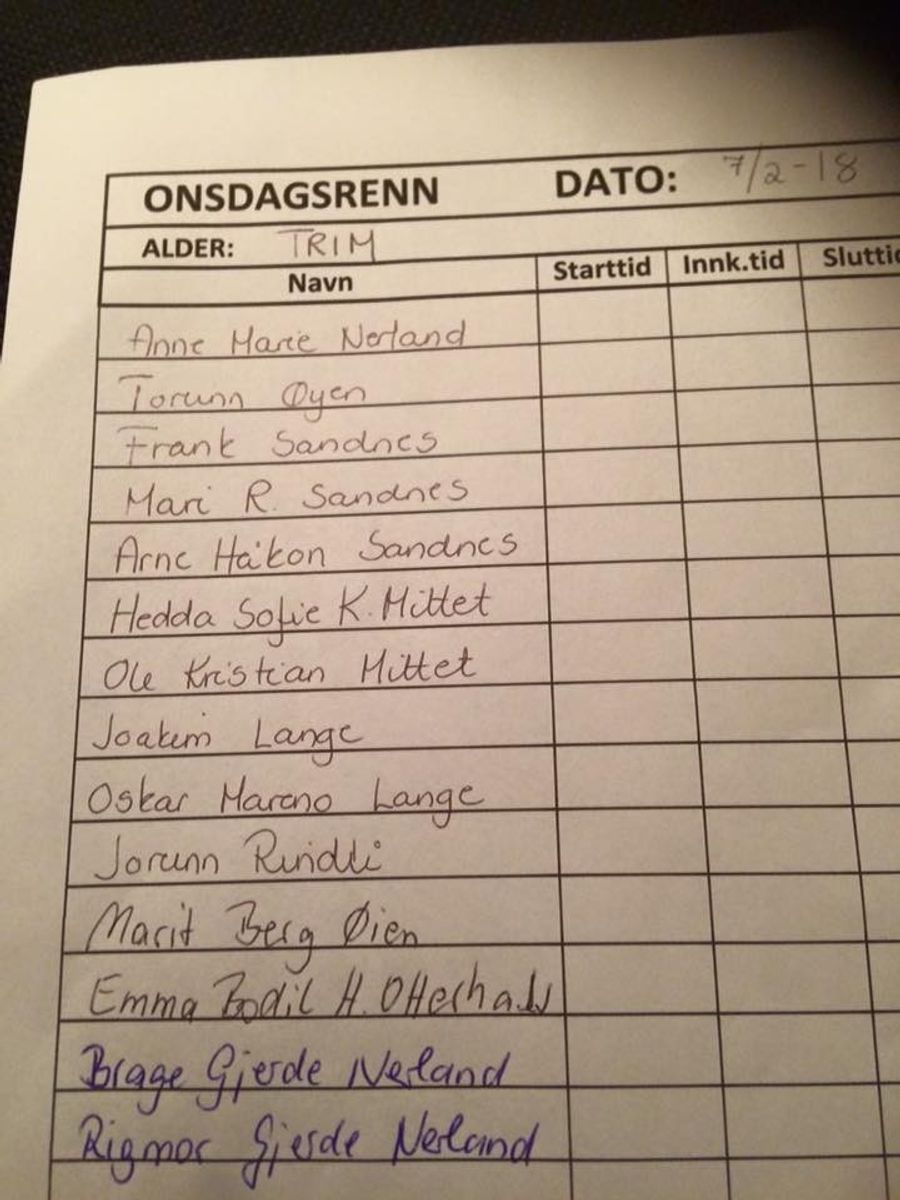 ONSDAGSRENN DATO: 7/2-18
ALDER: TRIM
Navn Starttid Innk.tid Sluttid
Anne Marie Nerland
Torunn Øyen
Frank Sandnes
Mari R. Sandnes
Arne Håkon Sandnes
Hedda Sofie K. Mittet
Ole Kristian Mittet
Joakim Lange
Oskar Mareno Lange
Jorunn Rindli
Marit Berg Øien
Emma Bodil H.
Brage Gjerde Nerland
Rigmor Gjerde Nerland